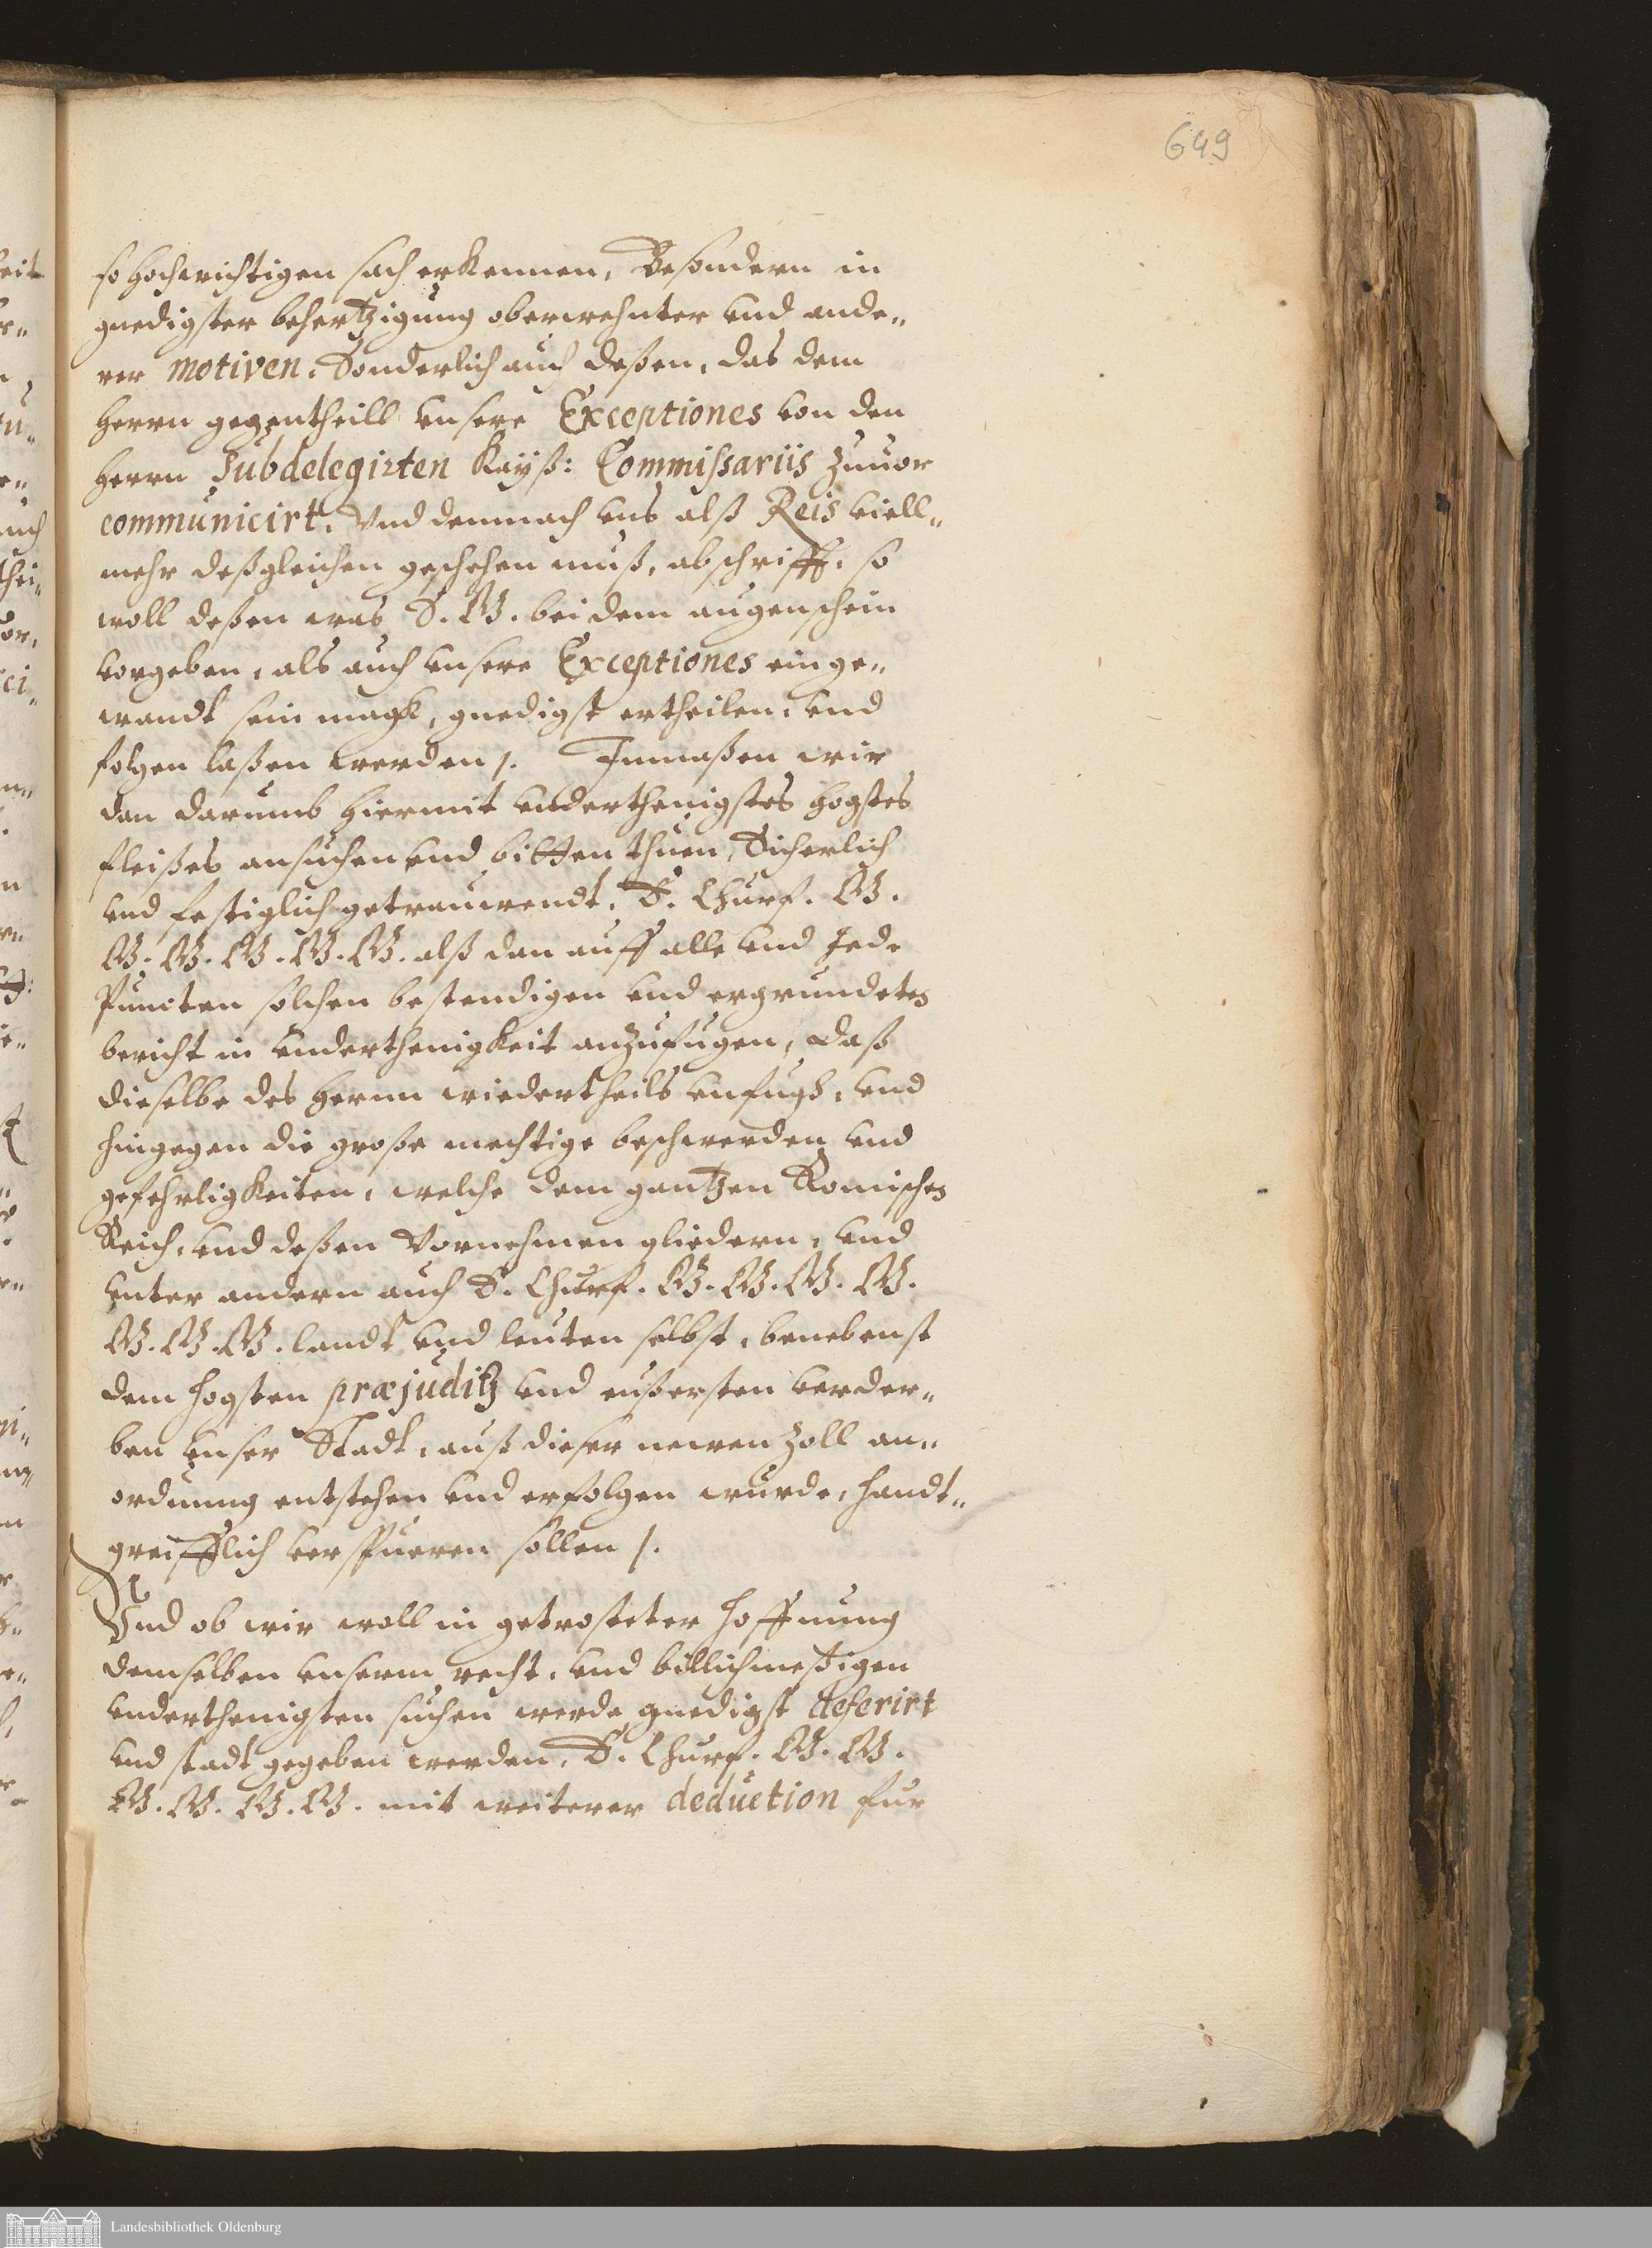 649
so hochwichtigen sach erkennen, Besondern in
gnedigster behertzigung oberwehnter vnd ande„
rer motiven, Sonderlich auch deßen, das dem
herrn gegentheill vnsere Exceptiones von den
herrn Subdelegirten Kayß: Commissariis zuuor
communicirt, Vnd demnach vns alß Reis viell„
mehr deßgleichen geschehen muß, abschrifft, so
woll deßen was S. G. bei dem augenschein
vorgeben, als auch vnsere Exceptiones einge„
wandt sein magk, gnedigst ertheilen, vnd
folgen laßen werden /. Inmaßen wir
dan darumb hiermit vnderthenigstes hogstes
fleißes ansuchen vnd bitten thuen, Sicherlich
vnd festiglich getrauwendt, E. Churf. G.
G. G. G. G. G. alß dan auff alle vnd Jede
Puncten solchen bestendigen vnd ergrundeten
bericht in vnderthenigkeit anzufugen, daß
dieselbe des herrn wiedertheils vnfugh, vnd
hingegen die große mechtige beschwerden vnd
gefehrligkeiten, welche dem gantzen Romischen
Reich, vnd deßen Vornehmen gliedern, vnd
vnter andern auch E. Churf. G. G. G. G.
G. G. G. landt vnd leuten selbst, benebenst
dem hogsten præjuditz vnd eußersten verder„
ben vnser Stadt, auß dieser newen Zoll an„
ordnung entstehen vnd erfolgen wurde, handt„
greifflich verspueren sollen /.
Vnd ob wir woll in getrosteter hoffnung
demselben vnserm recht, vnd billichmeßigen
vnderthenigsten suchen werde gnedigst deferirt
vnd stadt gegeben werden, E. Churf. G. G.
G. G. G. G. mit weiterer deduction fur
Landesbibliothek Oldenburg